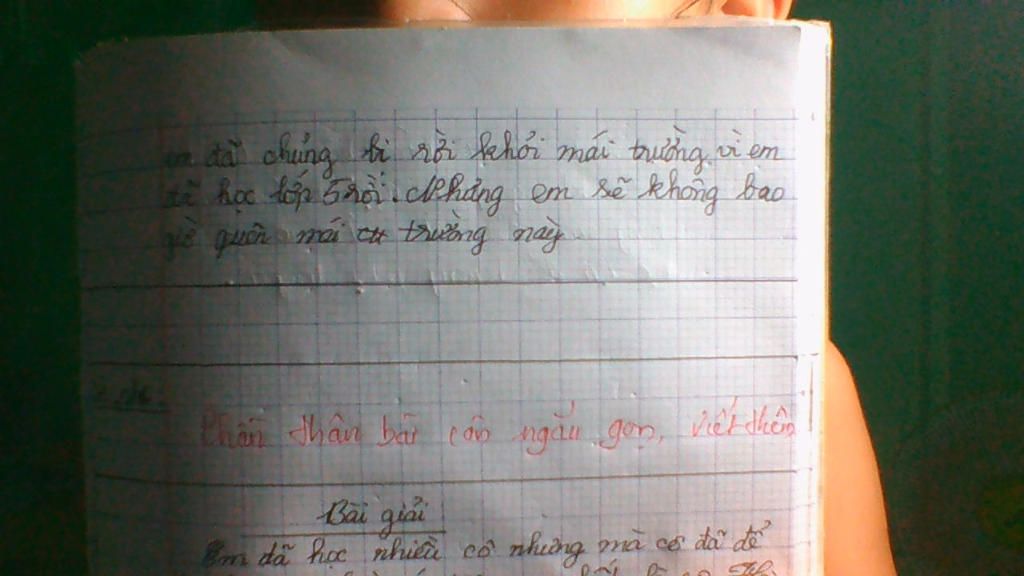 em đã chuẩng bị rời khỏi mái trường vì em
đã học lớp 5 rồi. Nhưng em sẽ không bao
giờ quên mái trường này
Phần thân bài còn ngắn gọn, viết thêm
Bài giải
Em đã học nhiều cô nhưng mà cô đã để